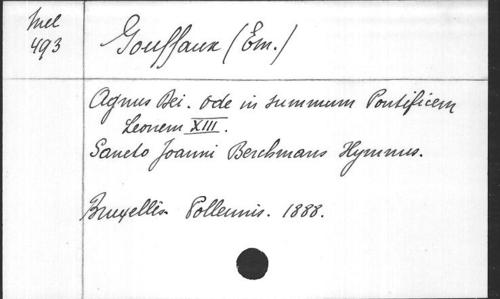 Mel
493
Gouffaux (Em.)
Agnus Dei. Ode in summum Pontificem
Leonem XIII.
Sancto Joanni Berchmans Hymnus.
Bruxellis Polleunis. 1888.